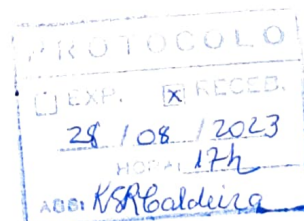 PROTOCOLO
EXP. X RECEB.
28 / 08 / 2023
HORA: 17h
ASS: KSRCaldeira